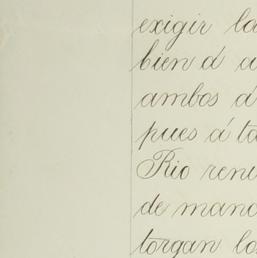 exigir la
bien á a
ambos á
pues á ta
Rio renu
de manc
torgan lo